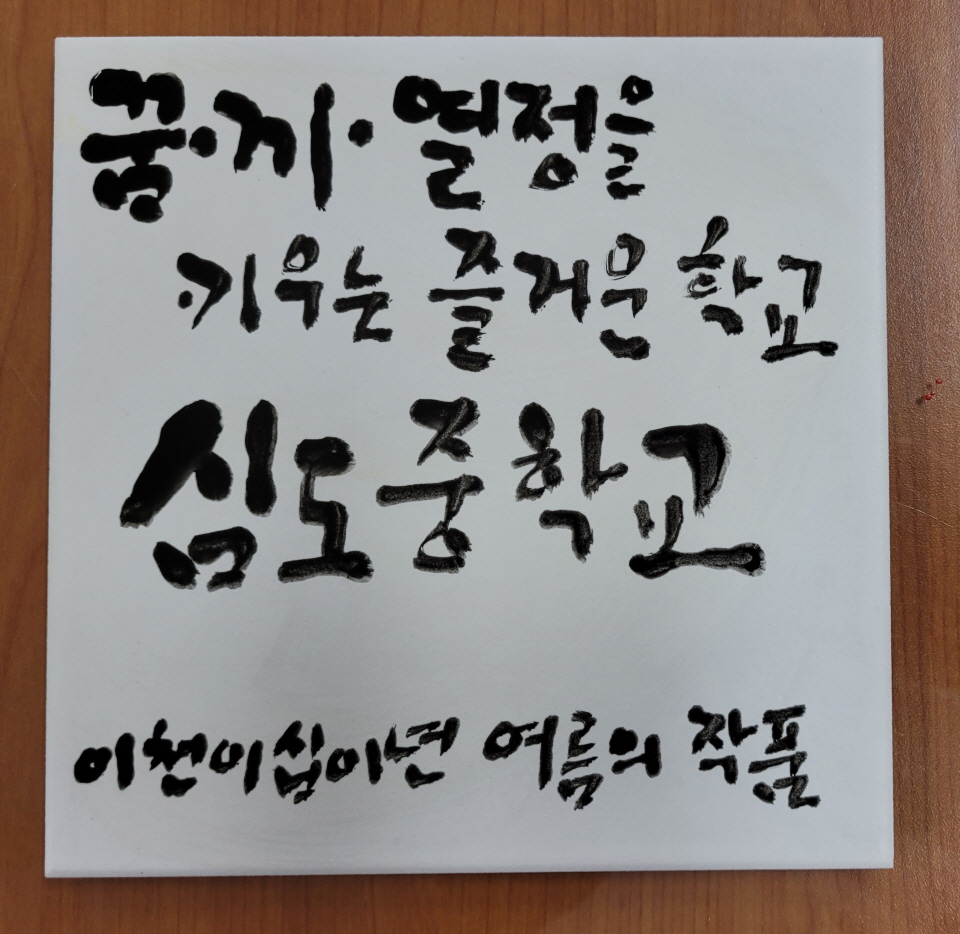 꿈·끼·열정을
키우는 즐거운 학교
심도중학교
이천이십이년 여름의 작품